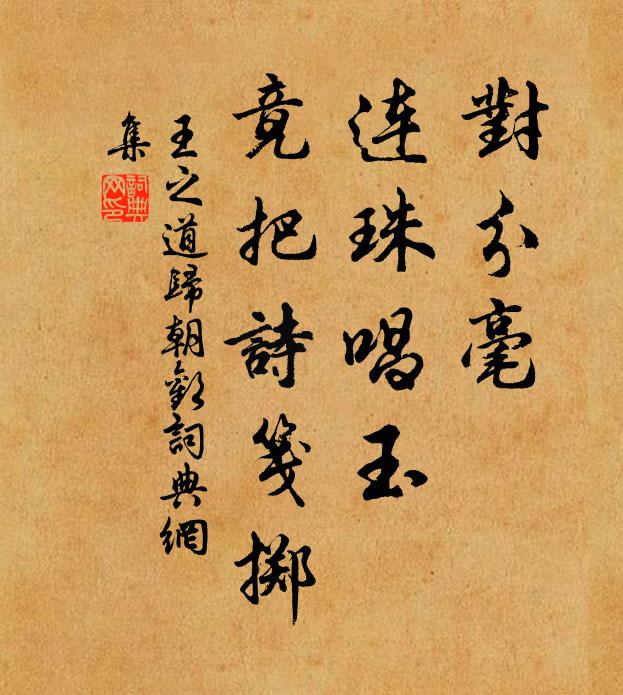 對分毫
連珠唱玉
竟把詩箋擲
王之道歸朝歡詞典網
集
詞典
网印